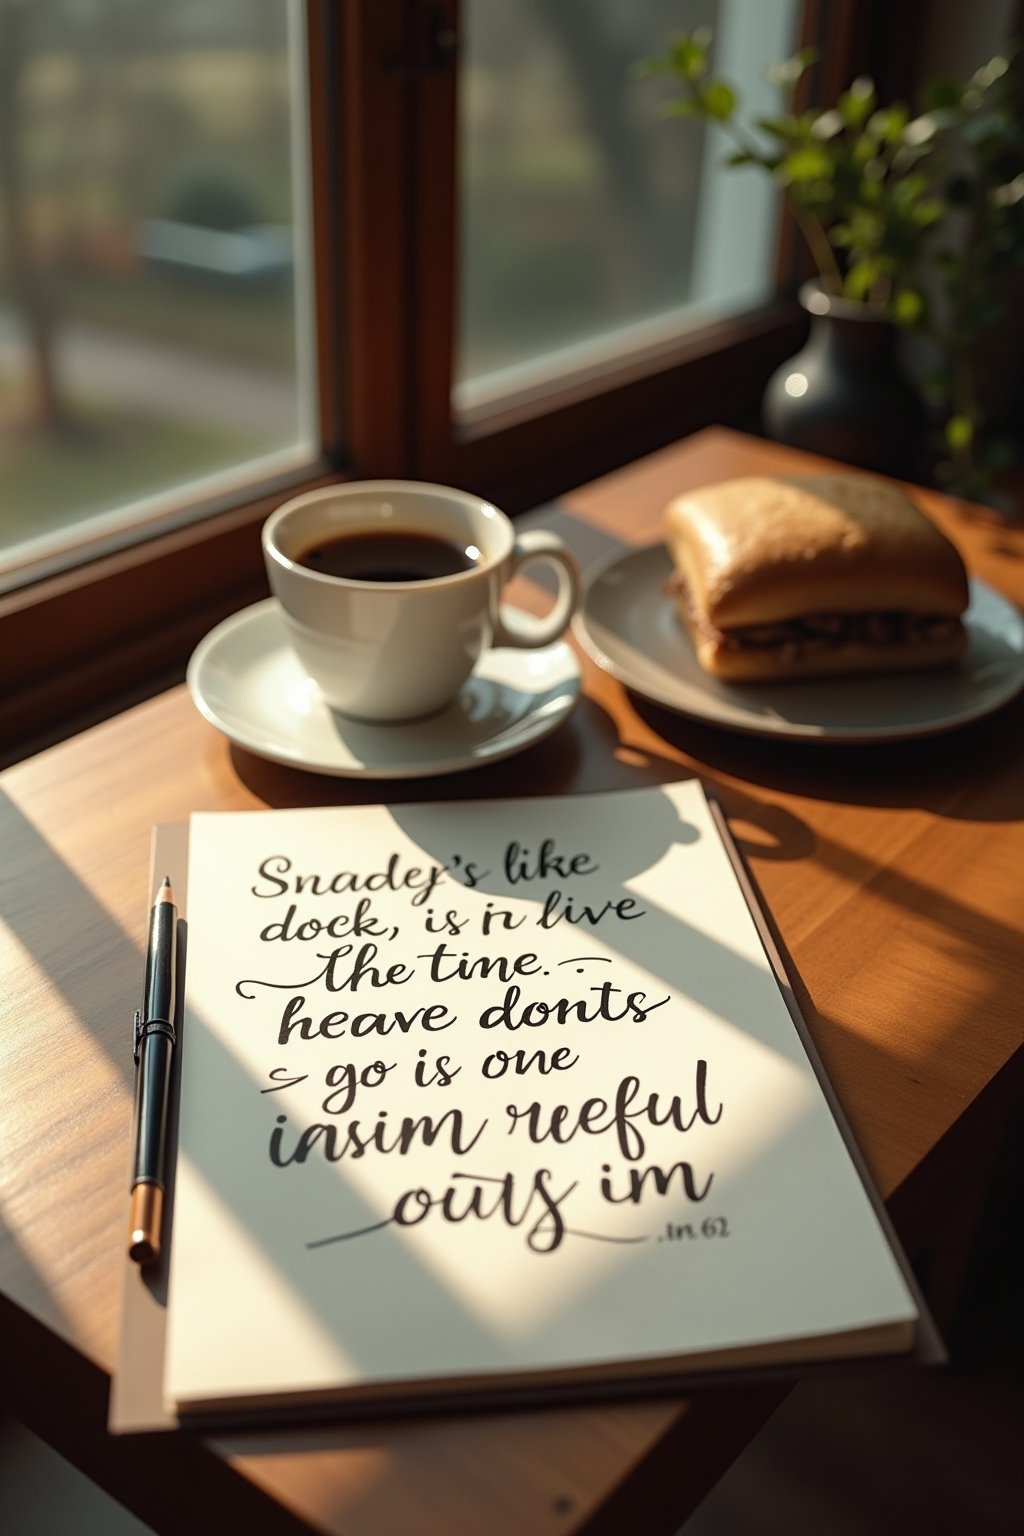 Snadey's like
dock, is in live
The time.
heave donts
go is one
inasim reeful
outs im
.In 62